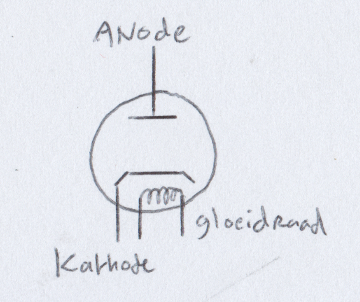 ANode
gloeidraad
Kathode